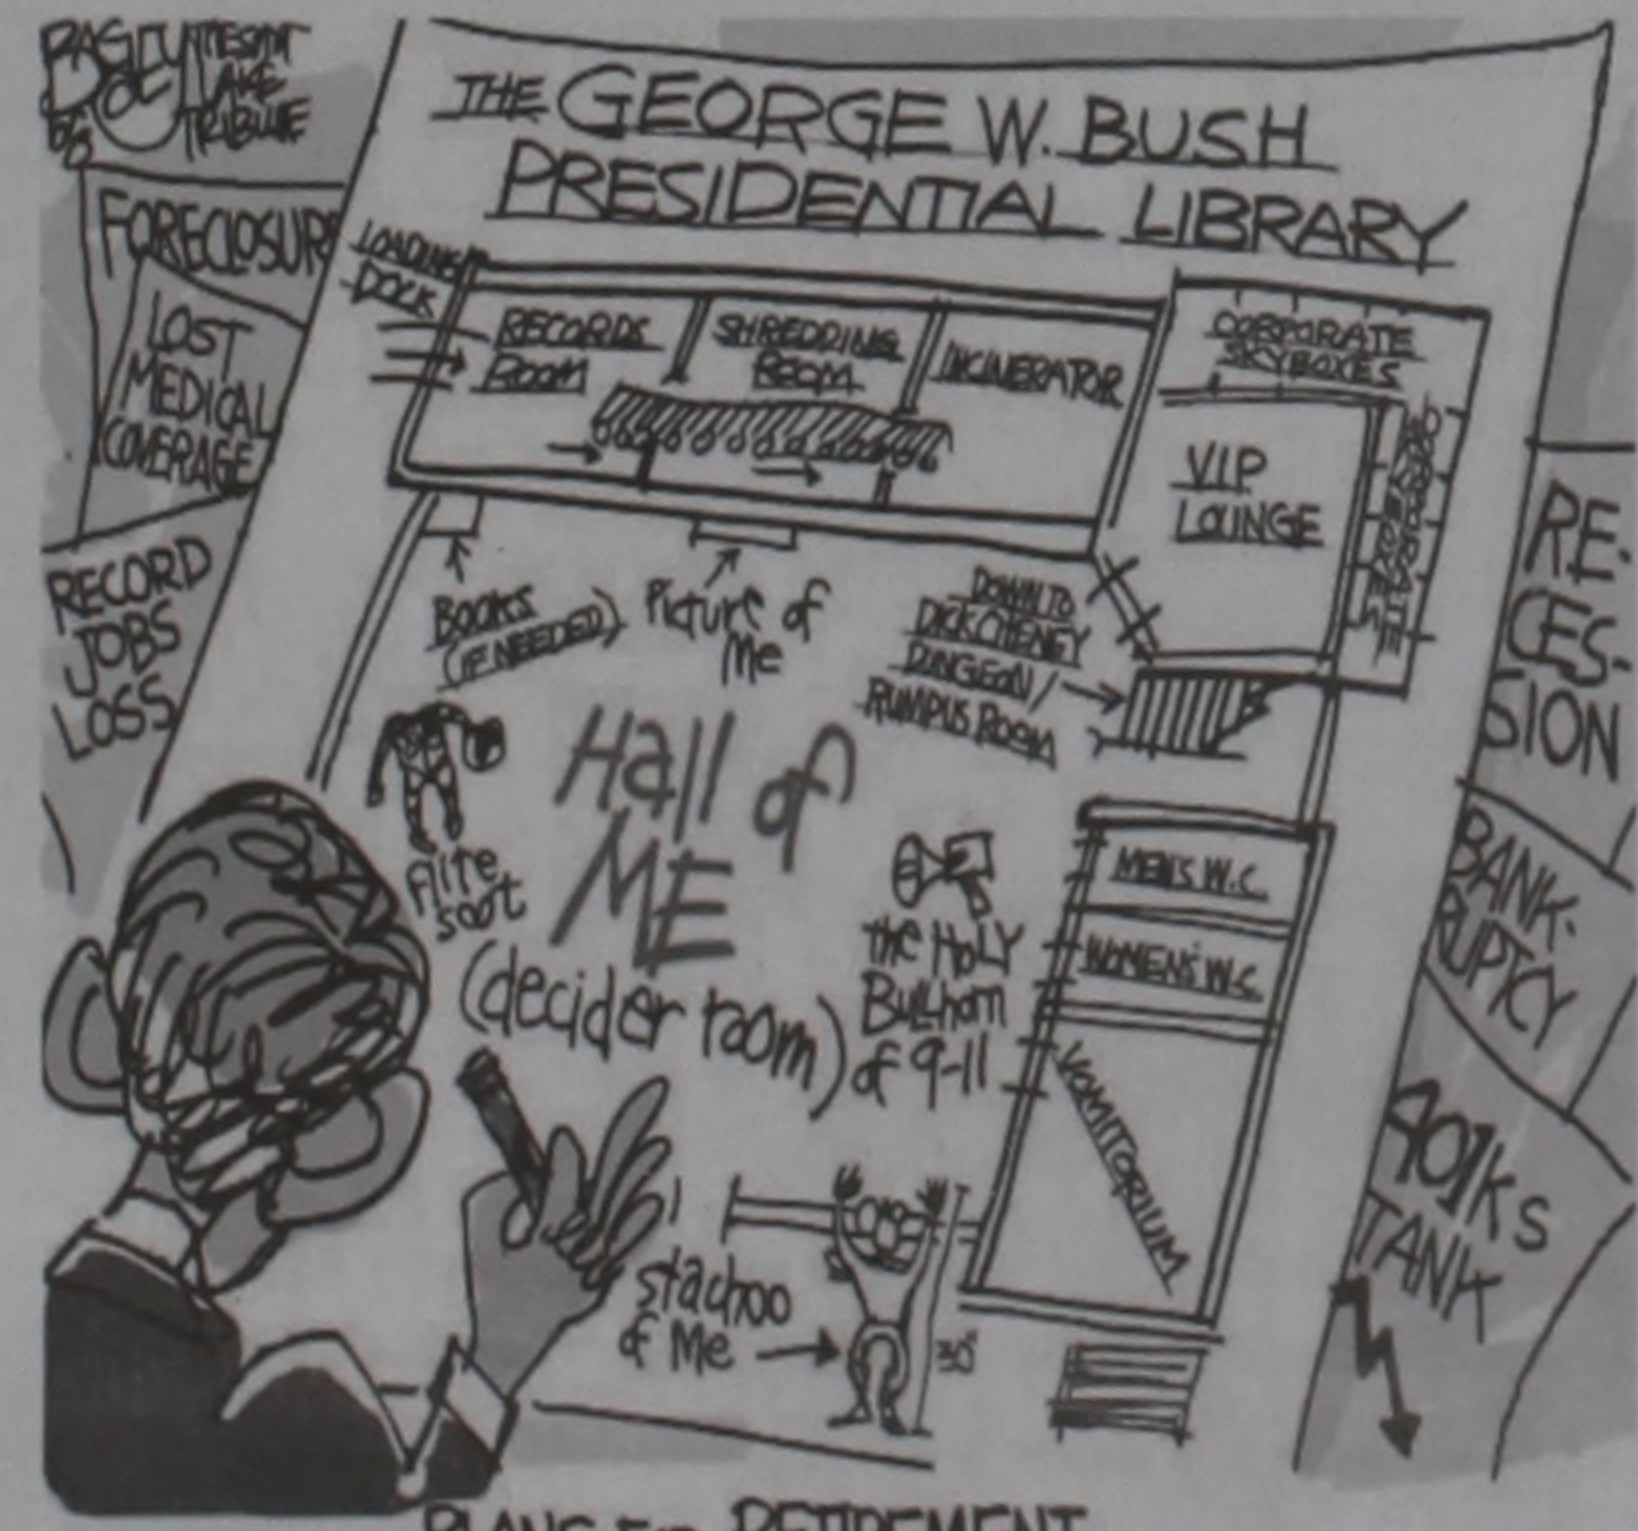 THE SALT
LAKE
TRIBUNE
THE GEORGE W. BUSH
PRESIDENTIAL LIBRARY
FORECLOSURE
LOST
MEDICAL
COVERAGE
RECORD
JOBS
LOSS
LOADING
DOCK
RECORDS
ROOM
SHREDDING
ROOM
INCINERATOR
CORPORATE
SKYBOXES
VIP
LOUNGE
CORPORATE
SKYBOXES
BOOKS
(IF NEEDED)
Picture of
Me
DOWN TO
DICK CHENEY
DUNGEON/
RUMPUS ROOM
Flite
soot
Hall of
ME
(decider room)
the HOLY
BullHorn
of 9-11
MEN'S W.C.
WOMEN'S W.C.
VOMITORIUM
stachoo
of Me
30'
RE-
CES-
SION
BANK-
RUPTCY
401KS
TANK
PLANS FOR RETIREMENT